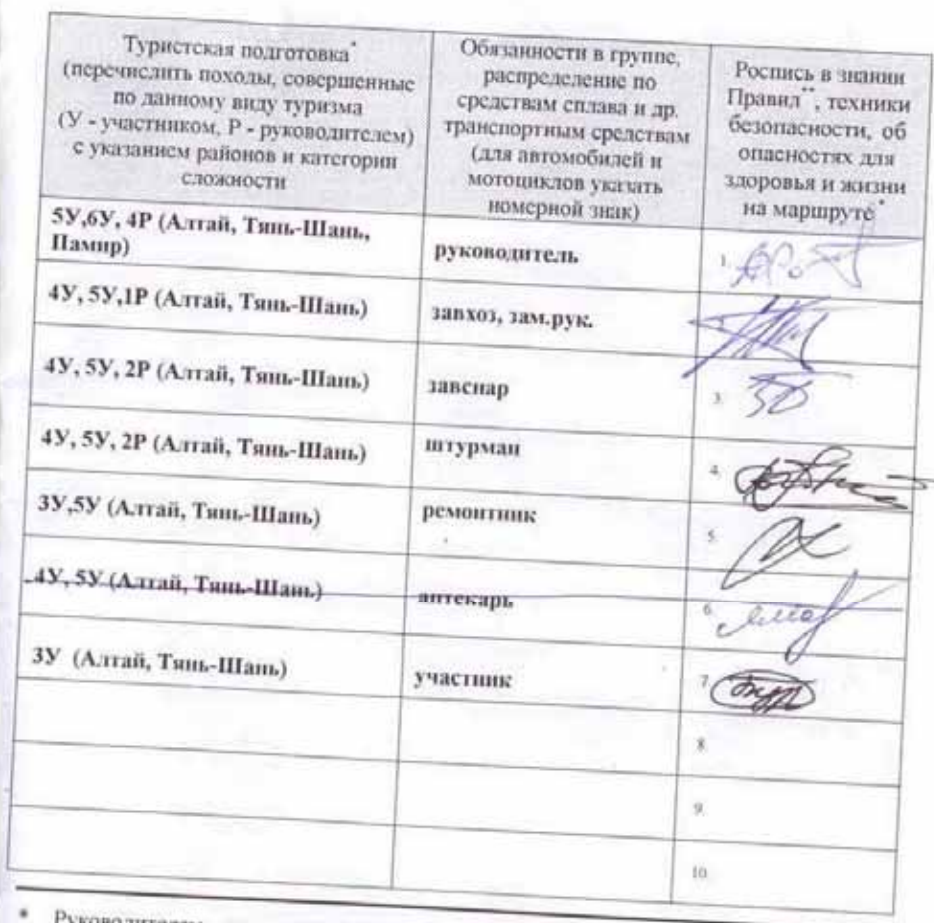 Туристская подготовка*
(перечислить походы, совершенные
по данному виду туризма
(У - участником, Р - руководителем)
с указанием районов и категории
сложности
Обязанности в группе,
распределение по
средствам сплава и др.
транспортным средствам
(для автомобилей и
мотоциклов указать
номерной знак)
Роспись в знании
Правил**, техники
безопасности, об
опасностях для
здоровья и жизни
на маршруте*
5У,6У, 4Р (Алтай, Тянь-Шань,
Памир)
руководитель
1.
4У, 5У,1Р (Алтай, Тянь-Шань)
завхоз, зам.рук.
4У, 5У, 2Р (Алтай, Тянь-Шань)
завснар
3.
4У, 5У, 2Р (Алтай, Тянь-Шань)
штурман
4.
3У,5У (Алтай, Тянь-Шань)
ремонтник
5.
4У, 5У (Алтай, Тянь-Шань)
аптекарь
6.
3У (Алтай, Тянь-Шань)
участник
7.
8.
9.
10.
*